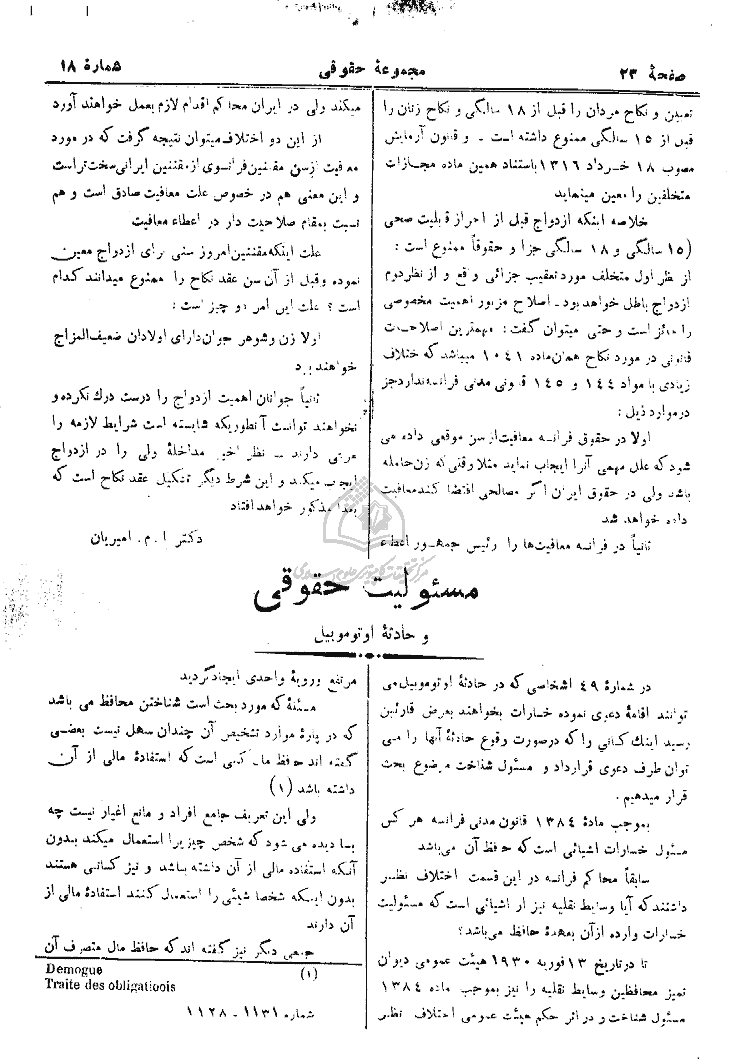 صفحهٔ ۲۳
مجموعهٔ حقوقی
شمارهٔ ۱۸
تعیین و نکاح مردان را قبل از ۱۸ سالگی و نکاح زنان را
قبل از ۱۵ سالگی ممنوع داشته است ـ و قانون آزمایش
مصوب ۱۸ خرداد ۱۳۱٦ باستناد همین ماده مجازات
متخلفین را معین مینماید
خلاصه اینکه ازدواج قبل از احراز قبلیت صحی
(۱۵ سالگی و ۱۸ سالگی جزا و حقوقاً ممنوع است :
از نظر اول متخلف مورد تعقیب جزائی واقع و از نظر دوم
ازدواج باطل خواهد بود ـ اصلاح مزبور اهمیت مخصوصی
را حائز است و حتی میتوان گفت : مهمترین اصلاحات
قانونی در مورد نکاح همان ماده ۱۰٤۱ میباشد که ختلاف
زیادی با مواد ۱٤٤ و ۱٤۵ قانونی مدنی فرانسه ندارد جز
در موارد ذیل :
اولا در حقوق فرانسه معافیت از سن موقعی داده می
شود که علل مهمی آنرا ایجاب نماید مثلا وقتی که زن حامله
باشد ولی در حقوق ایران اگر مصالحی اقتضا کند معافیت
داده خواهد شد
ثانیاً در فرانسه معافیت‌ها را رئیس جمهور اعطاء
میکند ولی در ایران محاکم اقدام لازم بعمل خواهند آورد
از این دو اختلاف میتوان نتیجه گرفت که در مورد
معافیت از سن مقنین فرانسوی از مقننین ایرانی سخت تر است
و این معنی هم در خصوص علت معافیت صادق است و هم
نسبت بمقام صلاحیت دار در اعطاء معافیت
علت اینکه مقننین امروز سنی برای ازدواج معین
نموده و قبل از آن سن عقد نکاح را ممنوع میدانند کدام
است ؟ علت این امر دو چیز است :
اولا زن و شوهر جوان دارای اولادان ضعیف المزاج
خواهند بود
ثانیاً جوانان اهمیت ازدواج را درست درك نکرده و
نخواهند توانست آنطوریکه شایسته است شرایط لازمه را
مرعی دارند ـ نظر اخیر مداخلهٔ ولی را در ازدواج
ایجاب میکند و این شرط دیگر تشکیل عقد نکاح است که
بعداً مذکور خواهد افتاد
دکتر ا . م . امیریان
مسئولیت حقوقی
و حادثهٔ اوتوموبیل
در شمارهٔ ٤۹ اشخاصی که در حادثهٔ اوتوموبیل می
توانند اقامهٔ دعوی نموده خسارات بخواهند بعرض قارئین
رسید اینك کسانی را که در صورت وقوع حادثهٔ آنها را می
توان طرف دعوی قرارداد و مسئول شناخت موضوع بحث
قرار میدهیم .
بموجب مادهٔ ۱۳۸٤ قانون مدنی فرانسه هر کس
مسئول خسارات اشیائی است که حافظ آن می‌باشد
سابقاً محاکم فرانسه در این قسمت اختلاف نظیر
داشتند که آیا وسایط نقلیه نیز از اشیائی است که مسئولیت
خسارات وارده از آن بعهدهٔ حافظ می‌باشد؟
تا در تاریخ ۱۳ فوریه ۱۹۳۰ هیئت عمومی دیوان
تمیز محافظین وسایط نقلیه را نیز بموجب ماده ۱۳۸٤
مسئول شناخت و در اثر حکم هیئت عمومی اختلاف نظیر
مرتفع و رویهٔ واحدی ایجاد گردید
مسئله که مورد بحث است شناختن محافظ می باشد
که در پارهٔ موارد تشخیص آن چندان سهل نیست بعضی
گفته اند حافظ مال کسی است که استفادهٔ مالی از آن
داشته باشد (۱)
ولی این تعریف جامع افراد و مانع اغیار نیست چه
بسا دیده می شود که شخص چیزیرا استعمال میکند بدون
آنکه استفاده مالی از آن داشته باشد و نیز کسانی هستند
بدون اینکه شخصا شیئی را استعمال کنند استفادهٔ مالی از
آن دارند
جمعی دیگر نیز گفته اند که حافظ مال متصرف آن
(۱) Demogue
Traite des obligatioois
شماره ۱۱۳۱ ـ ۱۱۲۸